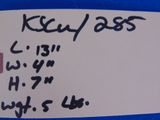 KSCW/285
L: 13"
W: 4"
H: 7"
wgt. 5 Lbs.